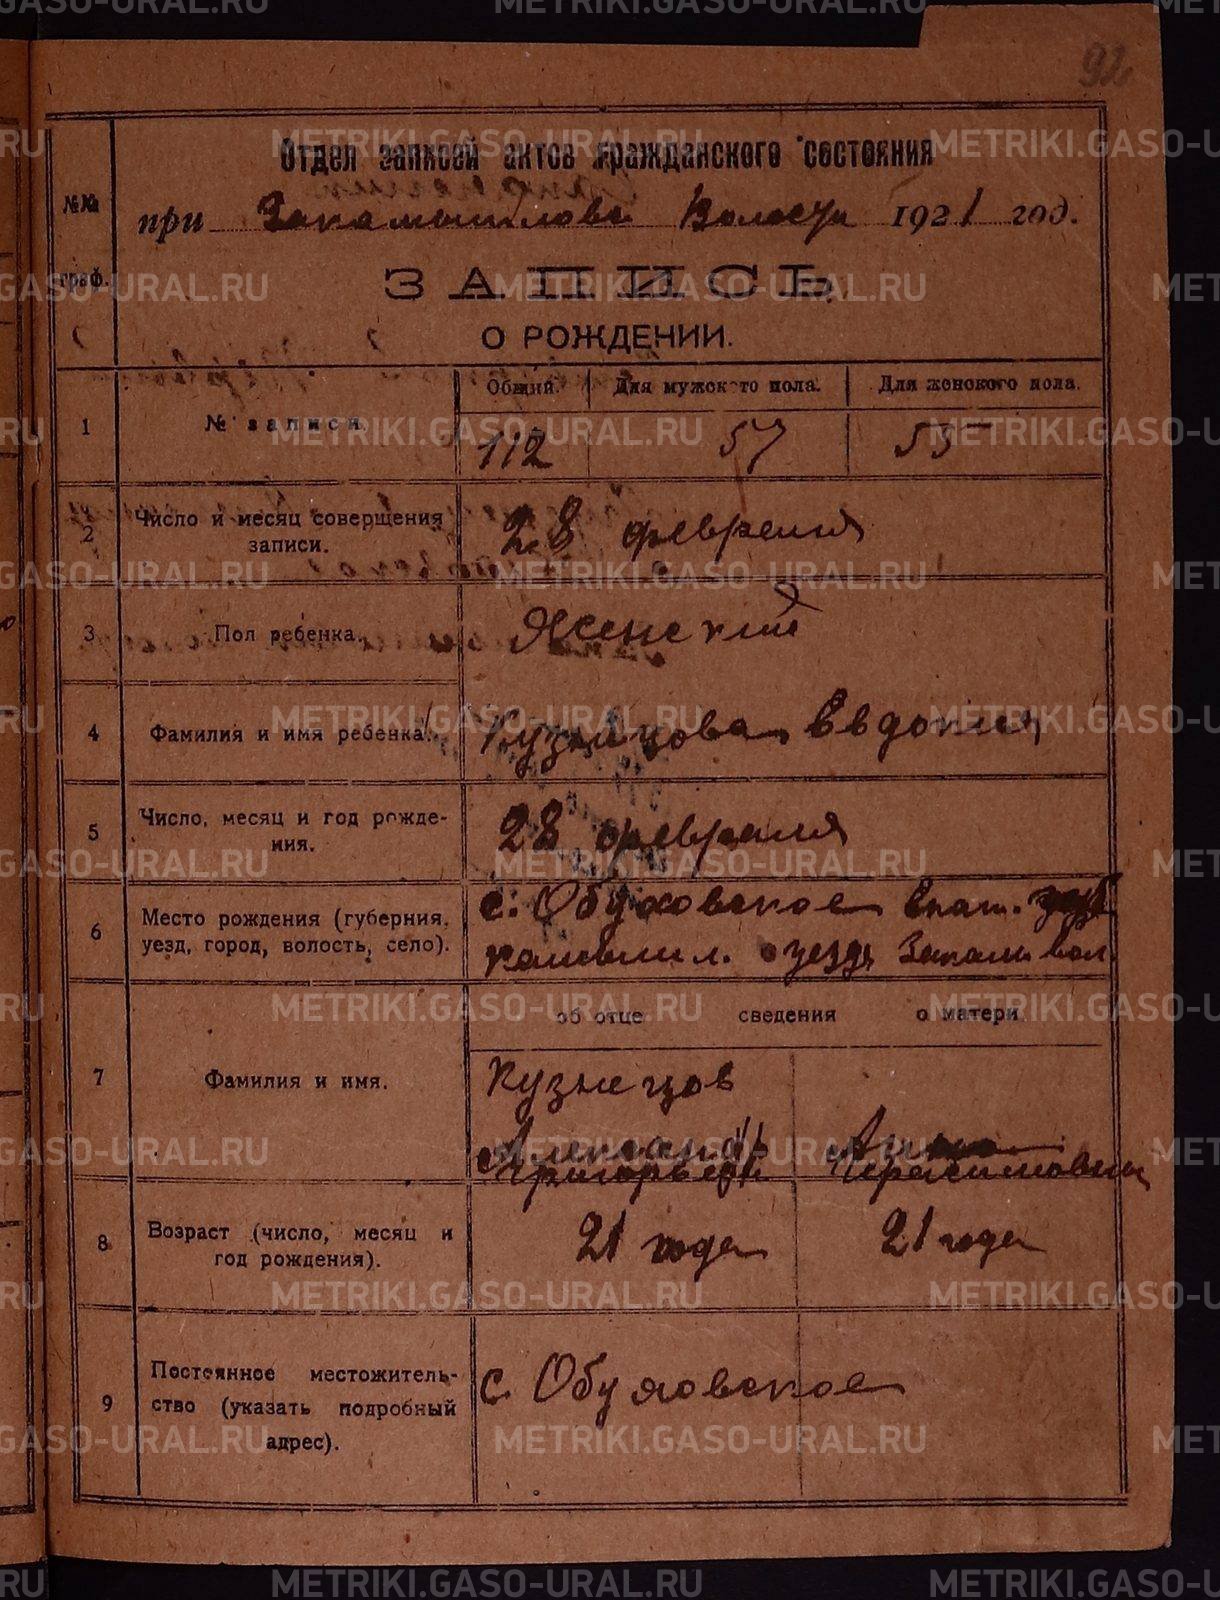 92
Отдел записей актов гражданского состояния
при Закамышловс. Волости 1921 год.
№№ граф.
ЗАПИСЬ
О РОЖДЕНИИ.
Общий. Для мужского пола. Для женского пола.
1 № записи. 112 57 55
2 Число и месяц совершения записи. 28 февраля
3 Пол ребенка. Женский
4 Фамилия и имя ребенка. Кузнецова Евдокия
5 Число, месяц и год рождения. 28 февраля
6 Место рождения (губерния, уезд, город, волость, село). с. Обуховское Екат. губ
камышл. уезда Закам. вол.
об отце сведения о матери
7 Фамилия и имя. Кузнецов
Александр Анна
Григорьев Герасимовна
8 Возраст (число, месяц и год рождения). 21 года 21 года
9 Постоянное местожительство (указать подробный адрес). с. Обуховское
METRIKI.GASO-URAL.RU